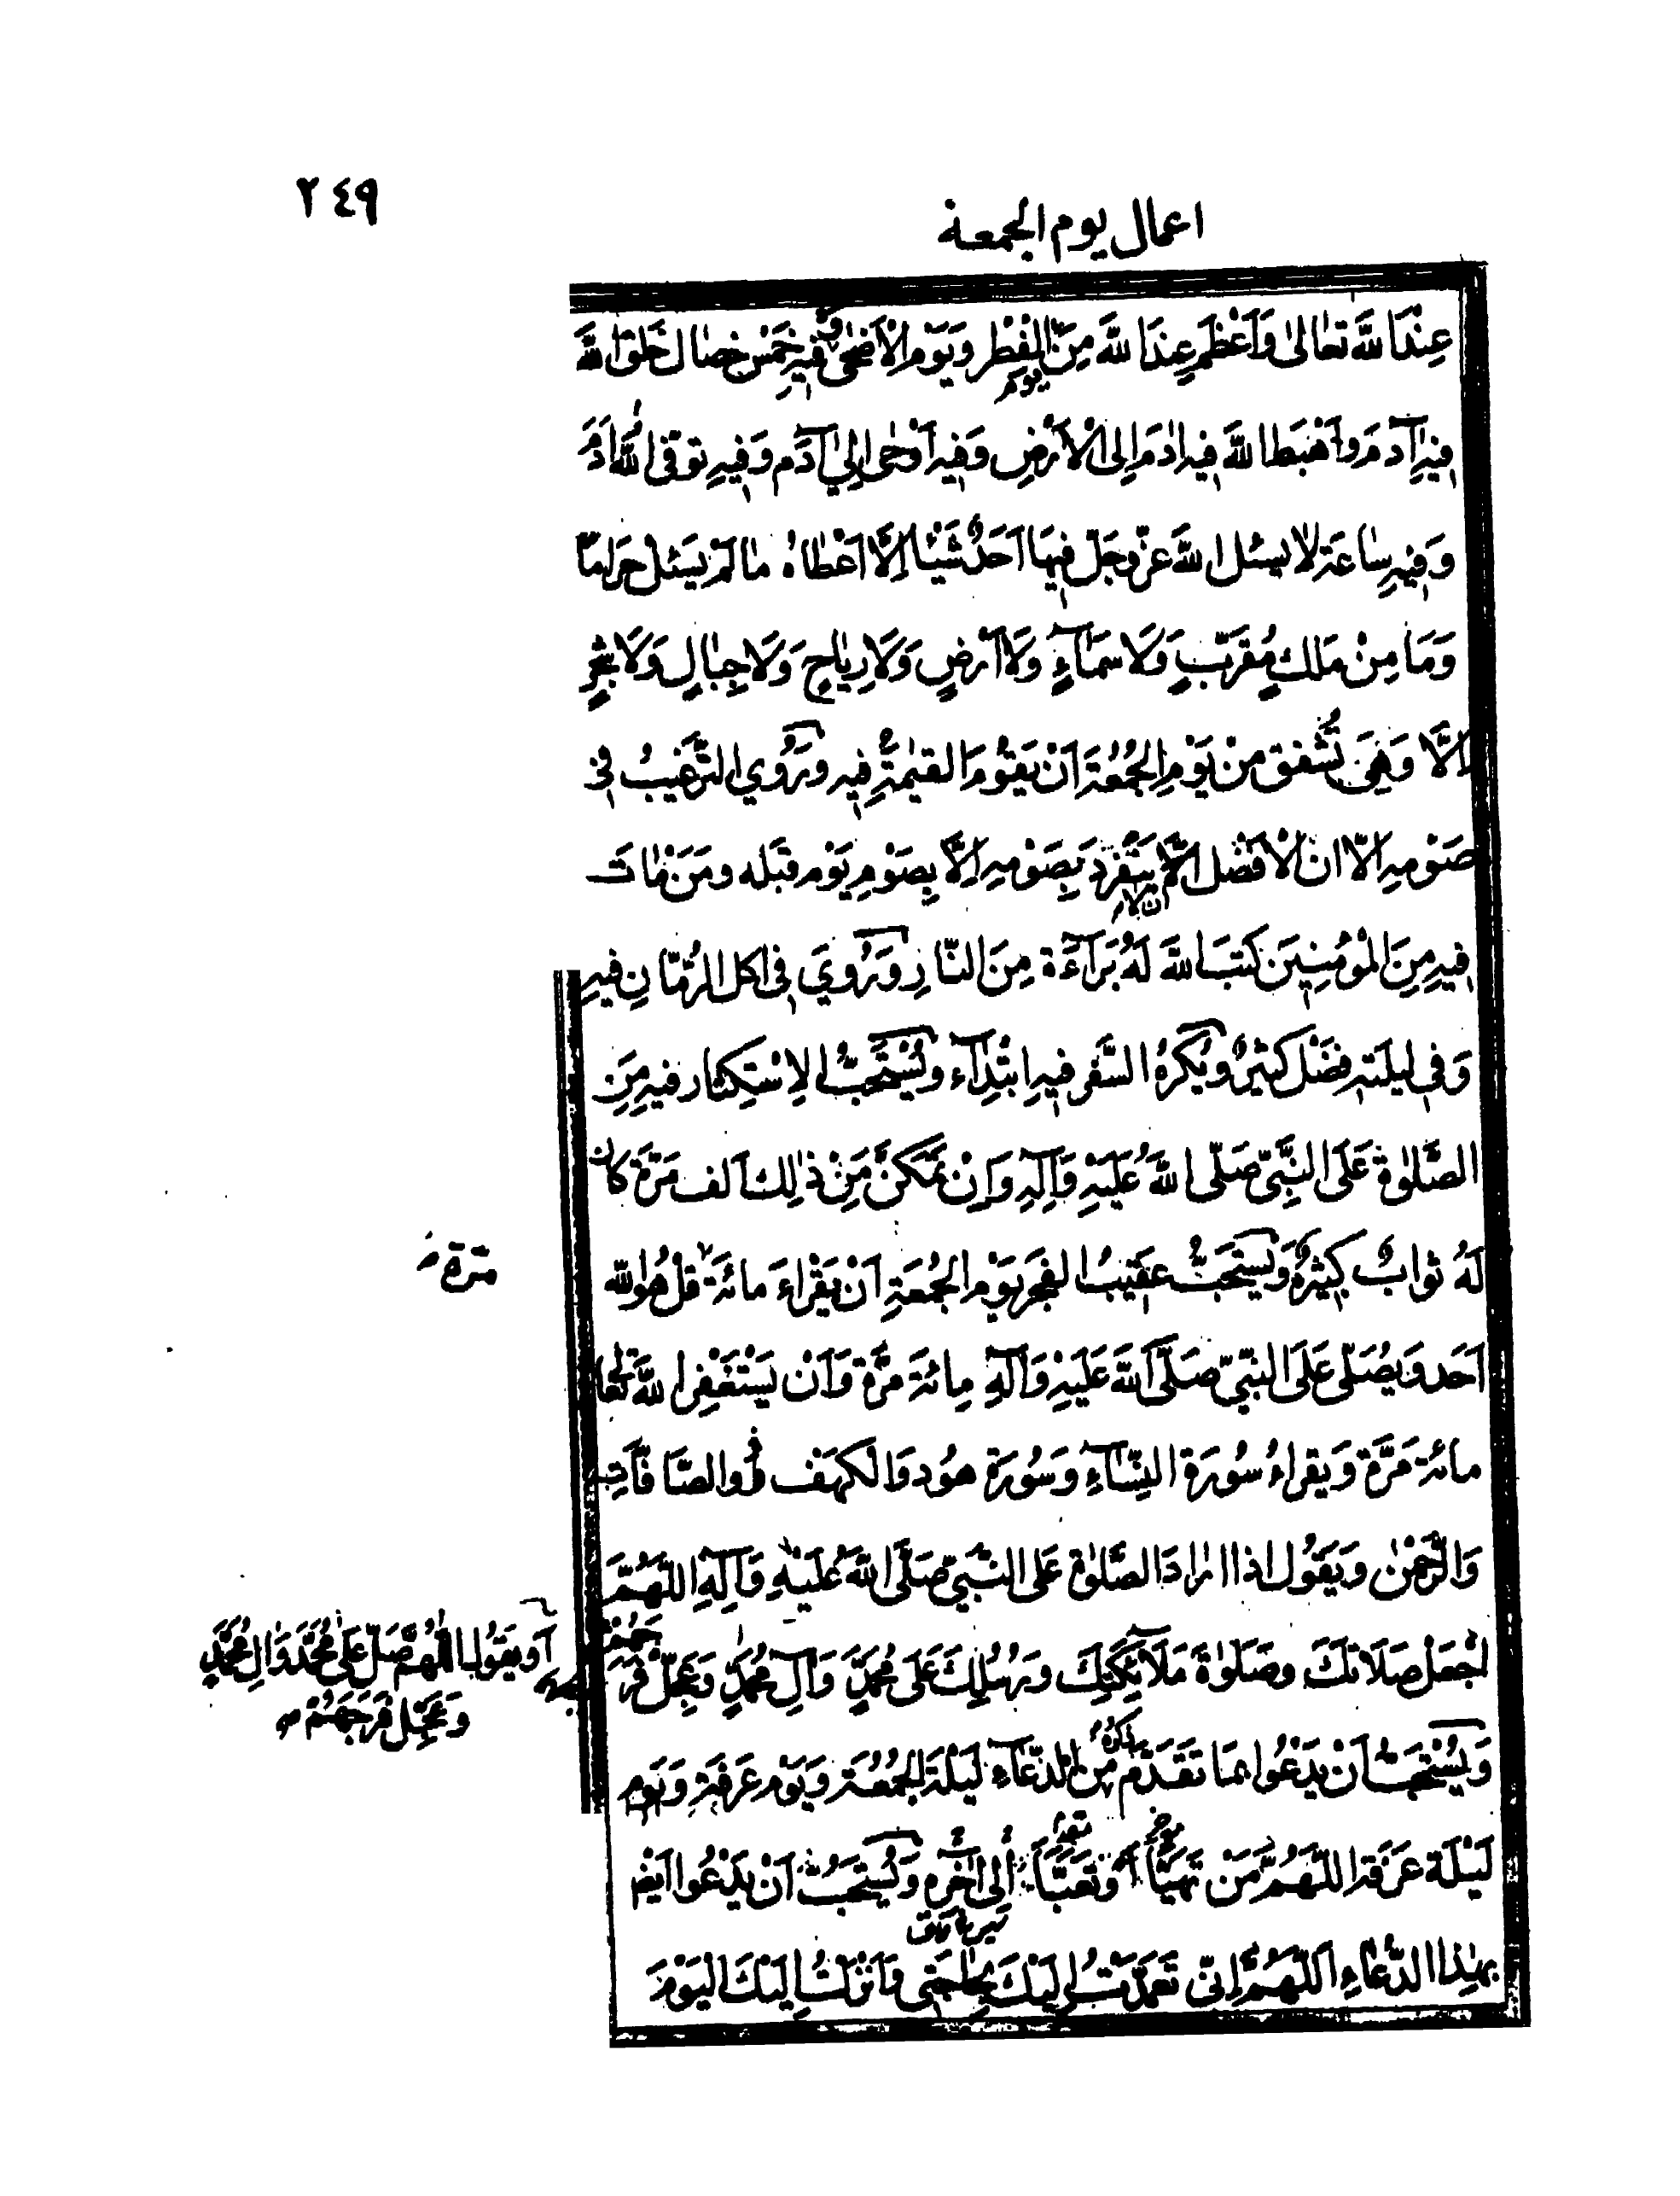 ٢٤٩
اعمال يوم الجمعة
عِنْدَ اللهَ تعٰالىٰ وَاَعْظَم عِندَ اللهَ مِنَ الْفِطْر وَيَوْم الْاَضْحىٰ وَ فيهِ خَمْسُ خِصٰال خَلَقَ اللهَ
يوم
فيهِ آدمَ وَاَهْبَطَ اللهَ فيهِ اٰدمَ اِلى الْاَرْضِ وَفيهِ اَوْحٰى اِلىٰ آدَم وَفيهِ توَفّى اللهُ اٰدمَ
وَفيهِ سٰاعَة لا يسئل اللهَ عَزّ وجَلّ فيهَا اَحَدٌ شَيْئًا اِلّا اَعْطٰاهُ مٰا لَمْ يَسْئل حَرامًا
وَمَا مِنْ مَلَكٍ مُقَرّبٍ وَلَا سَمٰاءٍ وَلَا اَرْضٍ وَلَا رِيٰاحٍ وَلَا جِبٰالٍ وَلَا شجَرٍ
اِلَّا وَهِيَ تُشْفق مِنْ يَوْمِ الْجُمُعَة اَنْ تَقُومَ القيٰمَة فيهِ وَرُويَ التّرغيبُ فى
صَوْمِهِ اِلّا ان الْاَفْضَل اَلّا يَتَفَرَّد بِصَوْمِهِ اِلَّا بِصَوْمِ يَوْم قَبْله ومَنْ مٰاتَ
فيهِ مِنَ الْمُؤمِنينَ كَتبَ اللهَ لَهُ بَرآءَة مِنَ النّارِ وَرُويَ فى اكل الرُمّانِ فيهِ
وَفى ليلَتهِ فضْل كثيرٌ وَيُكرَهُ السَّفَر فيهِ ابْتِدٰاء وَيُسْتَحَبُّ الاِسْتِكثار فيهِ مِنَ
الصَّلوٰةِ عَلَى النَّبِىّ صَلّى اللهَ عَلَيْهِ وَآلِهِ وَاِنْ تَمَكنَ مِنْ ذٰلِكَ اَلف مَرّة كان
لَهُ ثوابٌ كثيرٌ وَيُسْتَحَبُّ عَقيبَ الفجَر يَوْمِ الجُمُعَةِ اَنْ يَقْرَاءَ مائة قُل هُوَ الله
مَرّة
اَحَد وَيُصَلّى عَلَى النّبِىّ صَلّى اللهَ عَلَيْهِ وَآلِهِ مِائة مَرَّة وَاَنْ يَسْتَغْفِر اللهَ تعٰالى
مائة مَرَّة وَيَقراءُ سُورَة النِسٰآءِ وَسُورَة هوُد وَالكَهف وَ الصّافّاتِ
وَالرَّحْمٰن وَيَقُول اذا اَرٰادَ الصَّلوٰة عَلى النّبىّ صَلَّى اللهُ عَلَيْهِ وَآلِهِ اللّهُمَّ
اجْعَل صَلَاتكَ وصَلَوٰةَ مَلَآئكَتِكَ وَرُسُلِكَ عَلىٰ مُحَمَّدٍ وَآلِ مُحَمّدٍ وَعَجّل فَرَجَهُمْ
اَو يَقُول اللّهُمَّ صَلّ عَلىٰ مُحَمَّد وَاٰلِ مُحَمَّدٍ
وَعَجِّل فَرَجَهُمْ
وَيُسْتَحَبُّ اَنْ يَدْعُو بِمَا تَقَدّمَ مِنَ الدّعٰآءِ لَيْلَة الْجُمُعَة وَيَوْم عَرَفَة وَيَوم
لَيْلَة عَرَفَة اللّهُمَّ مَنْ تَهَيَّأَ اَوْ تَعَبَّأَ اِلىٰ آخِرِهِ وَيُسْتَحَبُّ اَنْ يَدْعُو ايضا
بِهٰذا الدُّعٰاءِ اَللّهُمَّ اِنّى تَعَمَّدْتُ اِلَيْكَ بِحٰاجَتى وَاَنْزَلْتُ اِلَيْكَ الْيَوْمَ